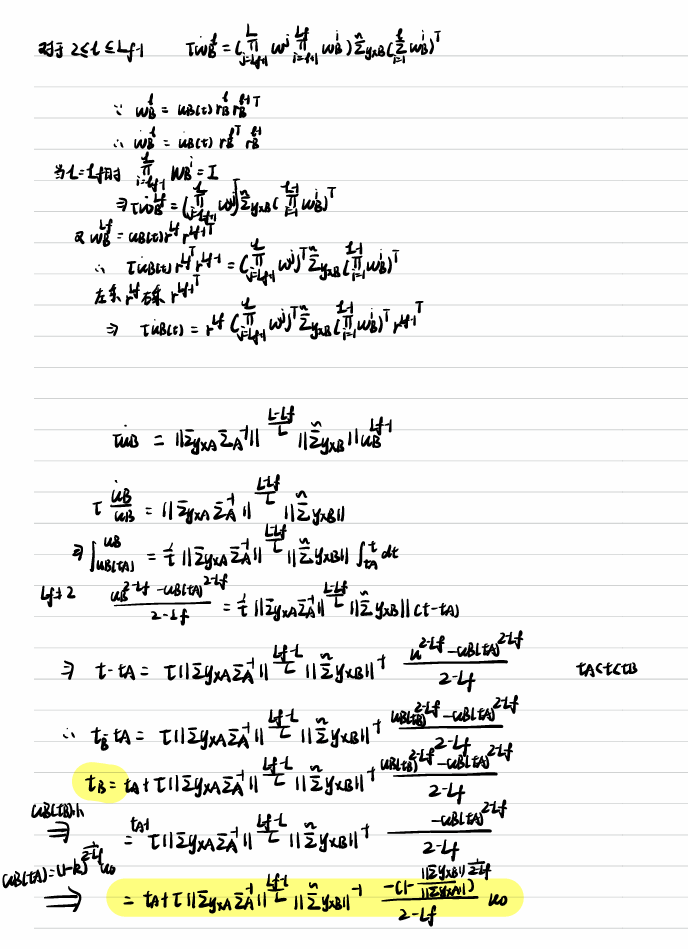 对于 2≤l≤Lf-1 τẇ_B^l = (∏_{j=Lf+1}^L w^j ∏_{i=l+1}^{Lf} w_B^i) Σ̃_{yxB} (∏_{i=1}^l w_B^i)^T
∵ w_B^l = u_B(t) r_B^l r_B^{l-1 T}
∴ ẇ_B^l = u̇_B(t) r_B^{l T} r_B^{l-1}
当 l=Lf时 ∏_{i=Lf+1}^L w_B^i = I
⇒ τẇ_B^{Lf} = (∏_{j=Lf+1}^L w^j)^T Σ̃_{yxB} (∏_{i=1}^{l-1} w_B^i)^T
又 w_B^{Lf} = u_B(t) r^{Lf} r^{Lf-1 T}
∴ τu̇_B(t) r^{Lf T} r^{Lf-1} = (∏_{j=Lf+1}^L w^j)^T Σ̃_{yxB} (∏_{i=1}^{l-1} w_B^i)^T
左乘 r^{Lf} 右乘 r^{Lf-1 T}
⇒ τu̇_B(t) = r^{Lf} (∏_{j=Lf+1}^L w^j)^T Σ̃_{yxB} (∏_{i=1}^{l-1} w_B^i)^T r^{Lf-1 T}
τu̇_B = ||Σ_{yxA} Σ_A^{-1}||^{(L-Lf)/L} ||Σ̃_{yxB}|| u_B^{Lf-1}
τ u̇_B/u_B = ||Σ_{yxA} Σ_A^{-1}||^{(L-Lf)/L} ||Σ̃_{yxB}||
⇒ ∫_{u_B(t_A)}^{u_B} = 1/τ ||Σ_{yxA} Σ_A^{-1}||^{(L-Lf)/L} ||Σ̃_{yxB}|| ∫_{t_A}^t dt
Lf≠2 (u_B^{2-Lf} - u_B(t_A)^{2-Lf})/(2-Lf) = 1/τ ||Σ_{yxA} Σ_A^{-1}||^{(L-Lf)/L} ||Σ̃_{yxB}|| (t-t_A)
⇒ t-t_A = τ||Σ_{yxA} Σ_A^{-1}||^{(Lf-L)/L} ||Σ̃_{yxB}||^{-1} (u^{2-Lf} - u_B(t_A)^{2-Lf})/(2-Lf) t_A<t<t_B
∴ t_B-t_A = τ||Σ_{yxA} Σ_A^{-1}||^{(Lf-L)/L} ||Σ̃_{yxB}||^{-1} (u_B(t_B)^{2-Lf} - u_B(t_A)^{2-Lf})/(2-Lf)
t_B = t_A+τ||Σ_{yxA} Σ_A^{-1}||^{(Lf-L)/L} ||Σ̃_{yxB}||^{-1} (u_B(t_B)^{2-Lf} - u_B(t_A)^{2-Lf})/(2-Lf)
⇒ = t_A+τ||Σ_{yxA} Σ_A^{-1}||^{(Lf-L)/L} ||Σ̃_{yxB}||^{-1} (-u_B(t_A)^{2-Lf})/(2-Lf)
u_B(t_A)=(1-k)^{1/(2-Lf)} u_0 ⇒ = t_A+τ||Σ_{yxA} Σ_A^{-1}||^{(Lf-L)/L} ||Σ̃_{yxB}||^{-1} (-(1-||Σ_{yxB}||/||Σ_{yxA}||)^{1/(2-Lf)})/(2-Lf) u_0